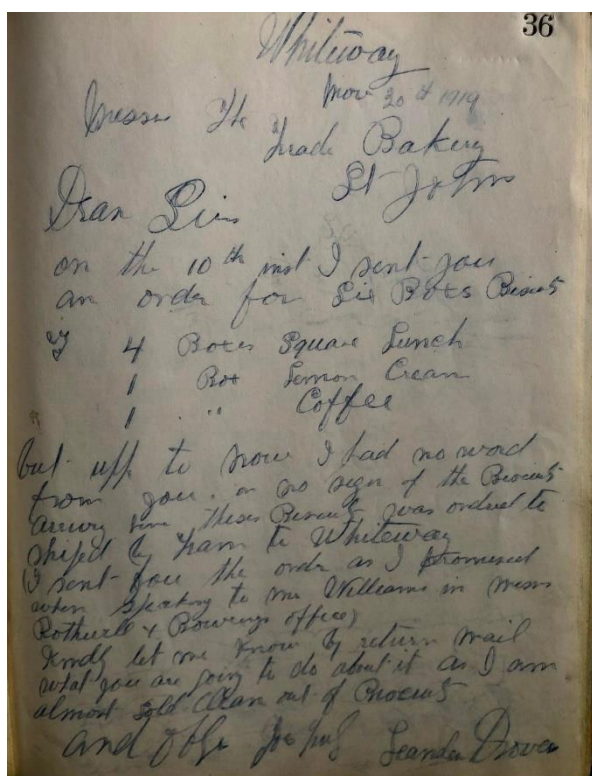 36
Whiteway
Nov 20th 1919
Messrs The
Trade Bakery
St Johns
Dear Sirs
on the 10th inst I sent you
an order for Six Boxs Biscuits
4 Boxes Square Lunch
1 Box Lemon Cream
1 " Coffee
but upp to now I had no word
from you. or no sign of the Biscuits
here these Biscuits was ordred to
shiped by tram to Whiteway
(I sent you the order as I promised
when speaking to mr Williams in messrs
Rothwell & Bowrings office)
Kindly let me know by return mail
what you are going to do about it as I am
almost sold clean out of Biscuits
and Leander Drover